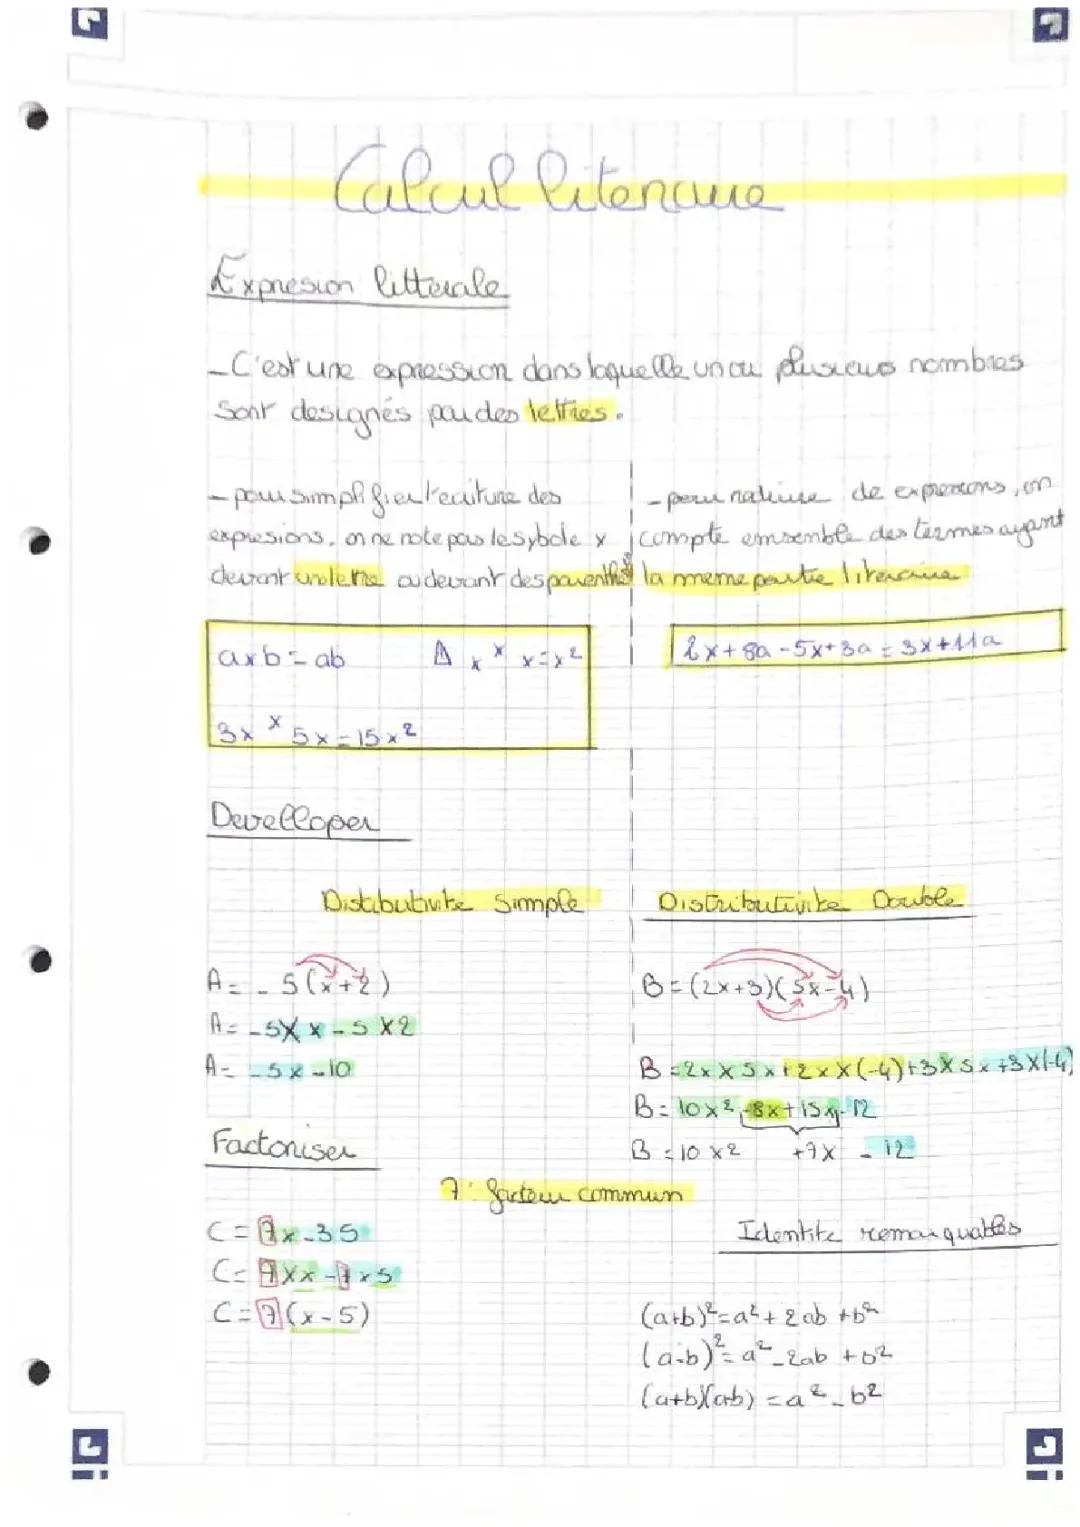 Calcul literaire
Expresion litterale
_ C'est une expression dans laquelle un ou plusieurs nombres
sont designés par des lettres.
- pour simplifier l'ecriture des
expresions, on ne note pas le sybole x
devant une lettre ou devant des parenthèses
axb = ab ⚠ x × x = x²
3x × 5x = 15x²
- pour reduire de expressions, on
compte emsemble des termes ayant
la meme partie literaire
2x + 8a - 5x + 3a = 3x + 11a
Develloper
Distributivite Simple
A = - 5(x+2)
A = -5 X x - 5 X 2
A = -5x - 10
Distributivite Double
B = (2x+3)(5x-4)
B = 2x X 5x + 2x X (-4) + 3 X 5x + 3 X (-4)
B = 10x² - 8x + 15x - 12
B = 10x2 +7x - 12
Factoriser
7 : facteur commun
C = 7x - 35
C = 7 X x - 7 x 5
C = 7(x-5)
Identite remarquables
(a+b)² = a² + 2ab + b²
(a-b)² = a² - 2ab + b²
(a+b)(a-b) = a² - b²